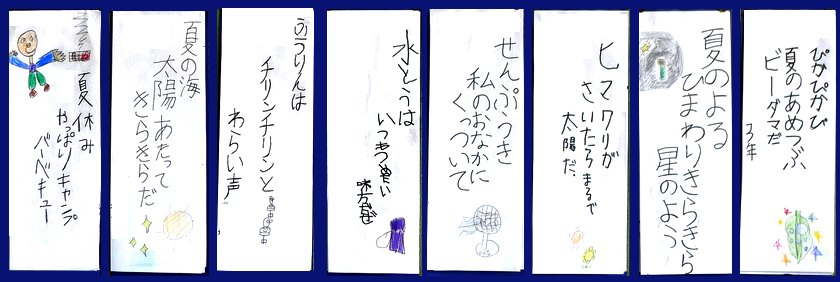 ぴかぴかび
夏のあめつぶ
ビーダマだ
3年
夏のよる
ひまわりきらきら
星のよう
ヒマワリが
さいたらまるで
太陽だ。
せんぷうき
私のおなかに
くっついて
水とうは
いつも
味方だぜ
ふうりんは
チリンチリンと
わらい声
夏の海
太陽あたって
きらきらだ
夏休み
やっぱりキャンプ
バーベキュー